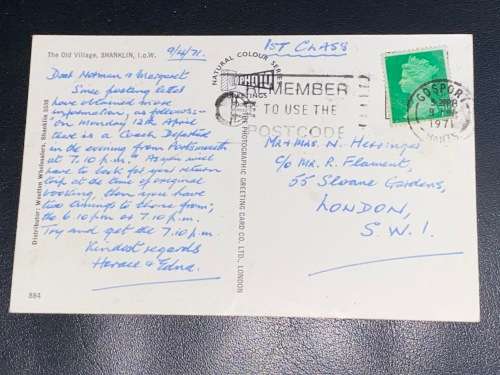 The Old Village, SHANKLIN, I.o.W.
9/4/71.
Dear Norman & Margaret
Since posting letter
have obtained more
information, as follows:-
on Monday 12th April
there is a Coach Departed
in the evening from Portsmouth
at 7.10 p.m. As you will
have to book for your return
trip at the time of original
booking, then you have
two timings to choose from;
the 6.10 p.m or 7.10 p.m.
Try and get the 7.10 p.m.
Kindest regards
Horace & Edna.
884
Distributor: Wootton Wholesalers, Shanklin
NATURAL COLOUR SERIES
PHOTOGRAPHIC GREETING CARD CO. LTD., LONDON
1ST CLASS
REMEMBER
TO USE THE
POSTCODE
GOSPORT
1971
HANTS
Mr & Mrs. N.
c/o Mr. R. Flament,
55 Sloane Gardens,
LONDON,
S.W.1.